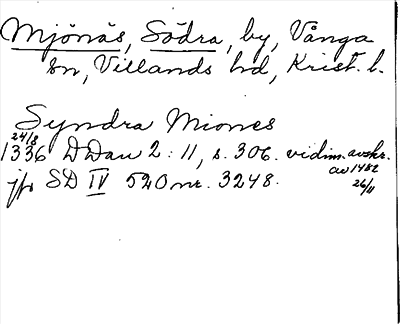 Mjönäs, Södra, by, Vånga
sn, Villands hd, Krist. l.
Syndra Miones
24/8
1336 DDan 2:11, s. 306. vidim. avskr.
av 1452
jfr SD IV 520 nr. 3248.
26/11